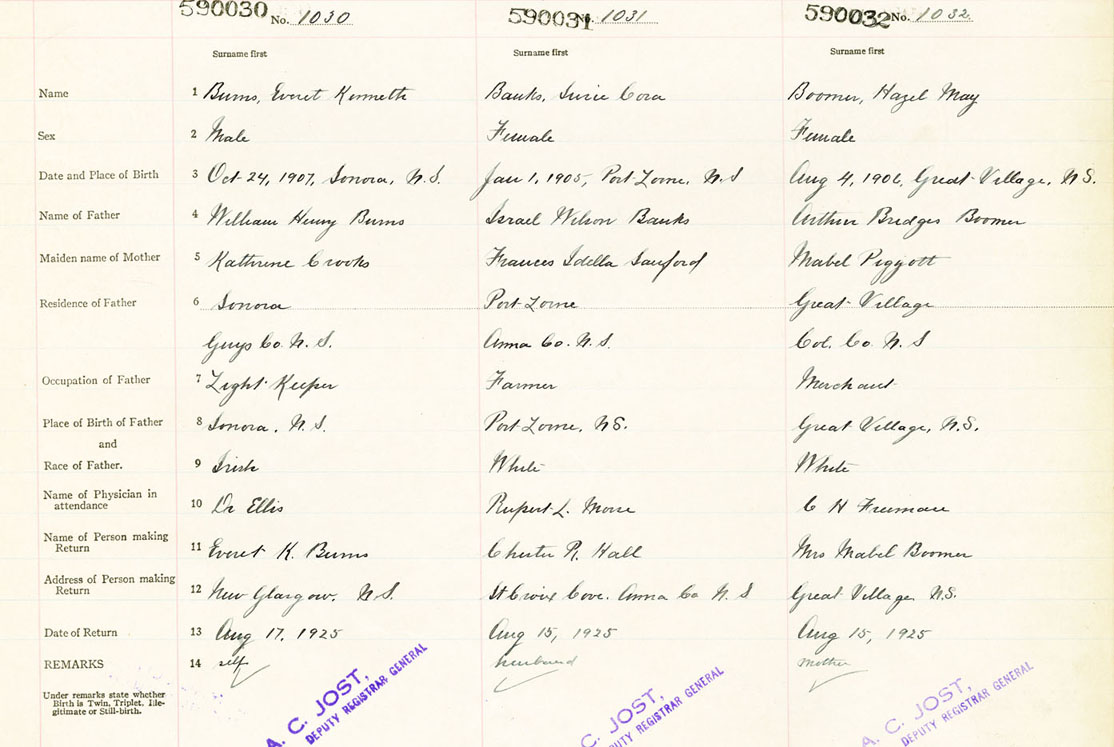 590030 No. 1030 590031 No. 1031 590032 No. 1032
Surname first Surname first Surname first
Name 1 Burns, Everet Kenneth Banks, Cora Boomer, Hazel May
Sex 2 Male Female Female
Date and Place of Birth 3 Oct 24, 1907, Sonora, N.S. Jan 1, 1905, Port Lorne, N.S Aug 4, 1906, Great Village, N.S.
Name of Father 4 William Henry Burns Israel Wilson Banks Arthur Bridges Boomer
Maiden name of Mother 5 Kathrine Crooks Frances Idella Sanford Mabel Piggott
Residence of Father 6 Sonora Port Lorne Great Village
Guys Co. N.S. Anna Co. N.S. Col. Co. N.S
Occupation of Father 7 Light Keeper Farmer Merchant
Place of Birth of Father 8 Sonora, N.S. Port Lorne, NS. Great Village, N.S.
and
Race of Father. 9 Irish White White
Name of Physician in
attendance 10 Dr Ellis Rupert L. Morse C H Freeman
Name of Person making
Return 11 Everet K. Burns Chester R. Hall Mrs Mabel Boomer
Address of Person making
Return 12 New Glasgow, N.S. St Croix Cove. Anna Co N.S Great Village, N.S.
Date of Return 13 Aug 17, 1925 Aug 15, 1925 Aug 15, 1925
REMARKS 14 self husband mother
Under remarks state whether
Birth is Twin, Triplet, Ille-
gitimate or Still-birth.
A. C. JOST,
DEPUTY REGISTRAR GENERAL
C. JOST,
DEPUTY REGISTRAR GENERAL
A. C. JOST,
DEPUTY REGISTRAR GENERAL